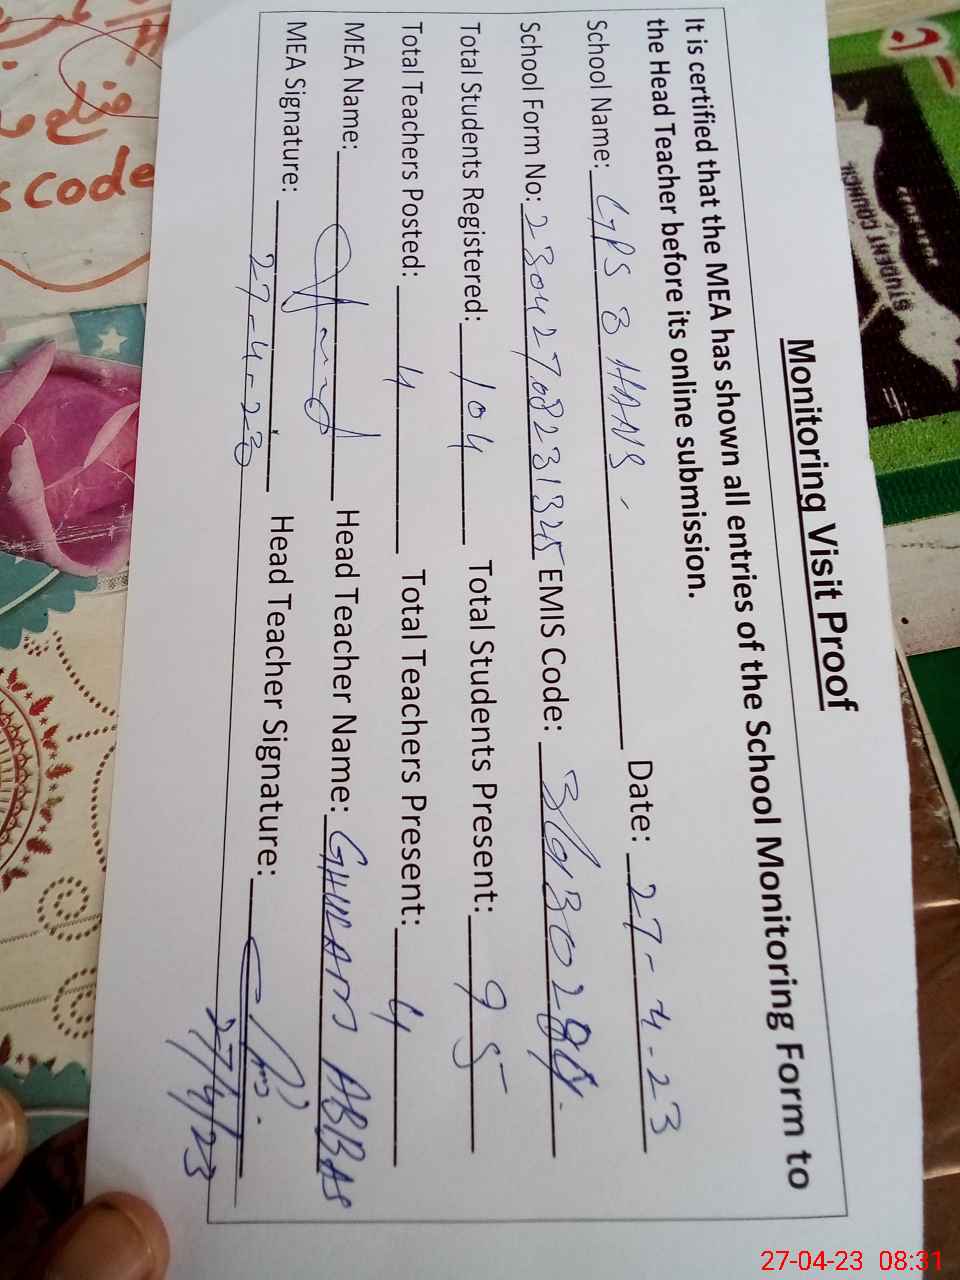 Monitoring Visit Proof
It is certified that the MEA has shown all entries of the School Monitoring Form to
the Head Teacher before its online submission.
School Name: GPS 3 HANS Date: 27-4-23
School Form No: EMIS Code:
Total Students Registered: 104 Total Students Present: 95
Total Teachers Posted: 4 Total Teachers Present: 4
MEA Name: Head Teacher Name: GHULAM ABBAS
MEA Signature: 27-4-23 Head Teacher Signature:
27/4/23
code
STUDENT COUNCIL
27-04-23 08:31